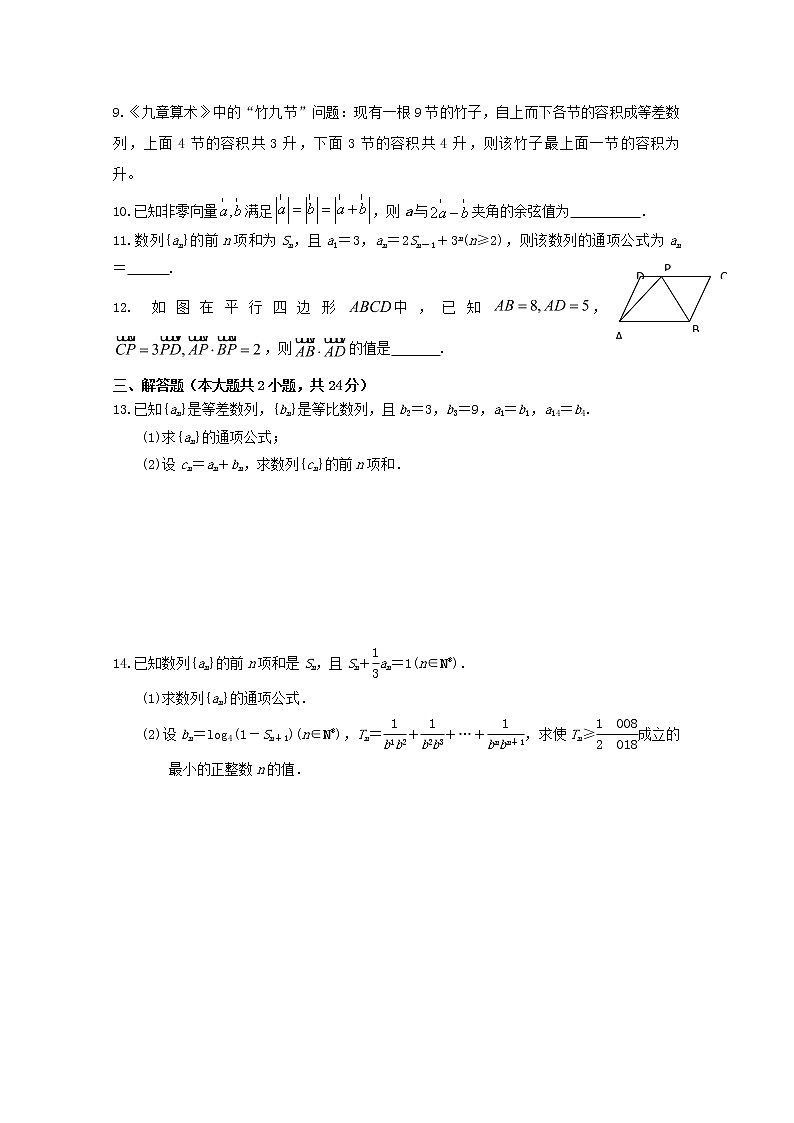 9.《九章算术》中的“竹九节”问题：现有一根9节的竹子，自上而下各节的容积成等差数
列，上面4节的容积共3升，下面3节的容积共4升，则该竹子最上面一节的容积为
升。
10.已知非零向量a,b满足|a|=|b|=|a+b|,则a与2a-b夹角的余弦值为__________.
11.数列{aₙ}的前n项和为Sₙ，且a₁＝3，aₙ＝2Sₙ₋₁＋3ⁿ(n≥2)，则该数列的通项公式为aₙ
＝______.
12. 如图在平行四边形ABCD中，已知AB=8,AD=5，
CP=3PD,AP·BP=2，则AB·AD的值是_______.
D P C
A B
三、解答题（本大题共2小题，共24分）
13.已知{aₙ}是等差数列，{bₙ}是等比数列，且b₂＝3，b₃＝9，a₁＝b₁，a₁₄＝b₄.
(1)求{aₙ}的通项公式；
(2)设cₙ＝aₙ＋bₙ，求数列{cₙ}的前n项和.
14.已知数列{aₙ}的前n项和是Sₙ，且Sₙ＋1/3aₙ＝1(n∈N*).
(1)求数列{aₙ}的通项公式.
(2)设bₙ＝log₄(1－Sₙ₊₁)(n∈N*)，Tₙ＝1/b¹b²＋1/b²b³＋…＋1/bⁿbⁿ⁺¹，求使Tₙ≥1 008/2 018成立的
最小的正整数n的值.